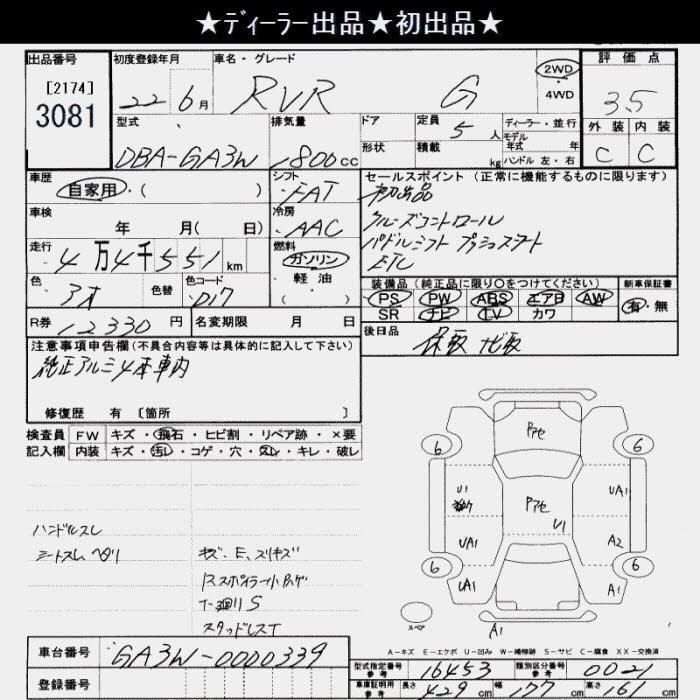 ★ディーラー出品★初出品★
出品番号
[2174]
3081
初度登録年月
22年6月
車名・グレード
RVR G
2WD
・4WD
評価点
3.5
外装 内装
C C
型式
DBA-GA3W
排気量
1800cc
ドア
形状
定員
5人
積載
kg
ディーラー・並行
モデル
年式 年
ハンドル 左・右
車歴
自家用・( )
シフト
FAT
車検
年 月( 日)
冷房
AAC
走行
4万4千551km
燃料
ガソリン
軽油
( )
色
アオ
色替
色コード
D17
R券
12330円
名変期限 月 日
セールスポイント (正常に機能するものに限ります)
初出品
クルーズコントロール
パドルシフト プッシュスタート
ETC
装備品 (純正品に限り〇をつけてください)
PS PW ABS エアB AW
SR ナビ TV カワ
新車保証書
有・無
後日品
保取 ナビ取
注意事項申告欄 (不具合内容等は具体的に記入して下さい)
純正アルミ4本車内
修復歴 有 [箇所 ]
検査員
記入欄
FW キズ・飛石・ヒビ割・リペア跡・×要
内装 キズ・汚レ・コゲ・穴・スレ・キレ・破レ
ハンドルスレ
シートスレ ヘタリ
キズ、E、スリキズ
Rスポイラーハガレ
S
スタッドレスT
Pアセ
Pアセ
6
6
6
6
U1
UA1
UA1
U1
UA1
A2
UA1
A1
スペア
A-キズ E-エクボ U-凹み W-補修跡 S-サビ C-腐食 XX-交換済
車台番号
GA3W-0000339
登録番号
型式指定番号
参考
16453
類別区分番号
参考
0021
車庫証明用
参考
長さ 429cm 幅 177cm 高さ 161cm